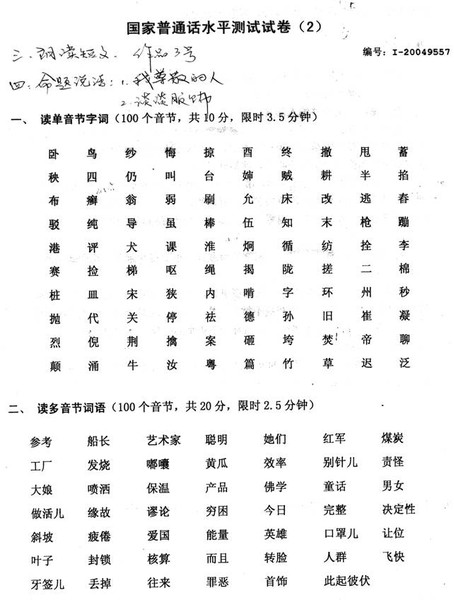 国家普通话水平测试试卷（2）
三.朗读短文.作品3号
编号：I-20049557
四.命题说话：1.我尊敬的人
2.谈谈服饰
一、 读单音节字词（100个音节，共10分，限时3.5分钟）
卧 鸟 纱 悔 掠 酉 终 撤 甩 蓄
秧 四 仍 叫 台 婶 贼 耕 半 掐
布 癣 翁 弱 刷 允 床 改 逃 春
驳 纯 导 虽 棒 伍 知 末 枪 蹦
港 评 犬 课 淮 炯 循 纺 拴 李
赛 捡 梯 呕 绳 揭 陇 搓 二 棉
桩 皿 宋 狭 内 啃 字 环 州 秒
抛 代 关 停 祛 德 孙 旧 崔 凝
烈 倪 荆 擒 案 砸 垮 焚 帝 聊
颠 涌 牛 汝 粤 篇 竹 草 迟 泛
二、 读多音节词语（100个音节，共20分，限时2.5分钟）
参考 船长 艺术家 聪明 她们 红军 煤炭
工厂 发烧 嘟囔 黄瓜 效率 别针儿 责怪
大娘 喷洒 保温 产品 佛学 童话 男女
做活儿 缘故 谬论 穷困 今日 完整 决定性
斜坡 疲倦 爱国 能量 英雄 口罩儿 让位
叶子 封锁 核算 而且 转脸 人群 飞快
牙签儿 丢掉 往来 罪恶 首饰 此起彼伏